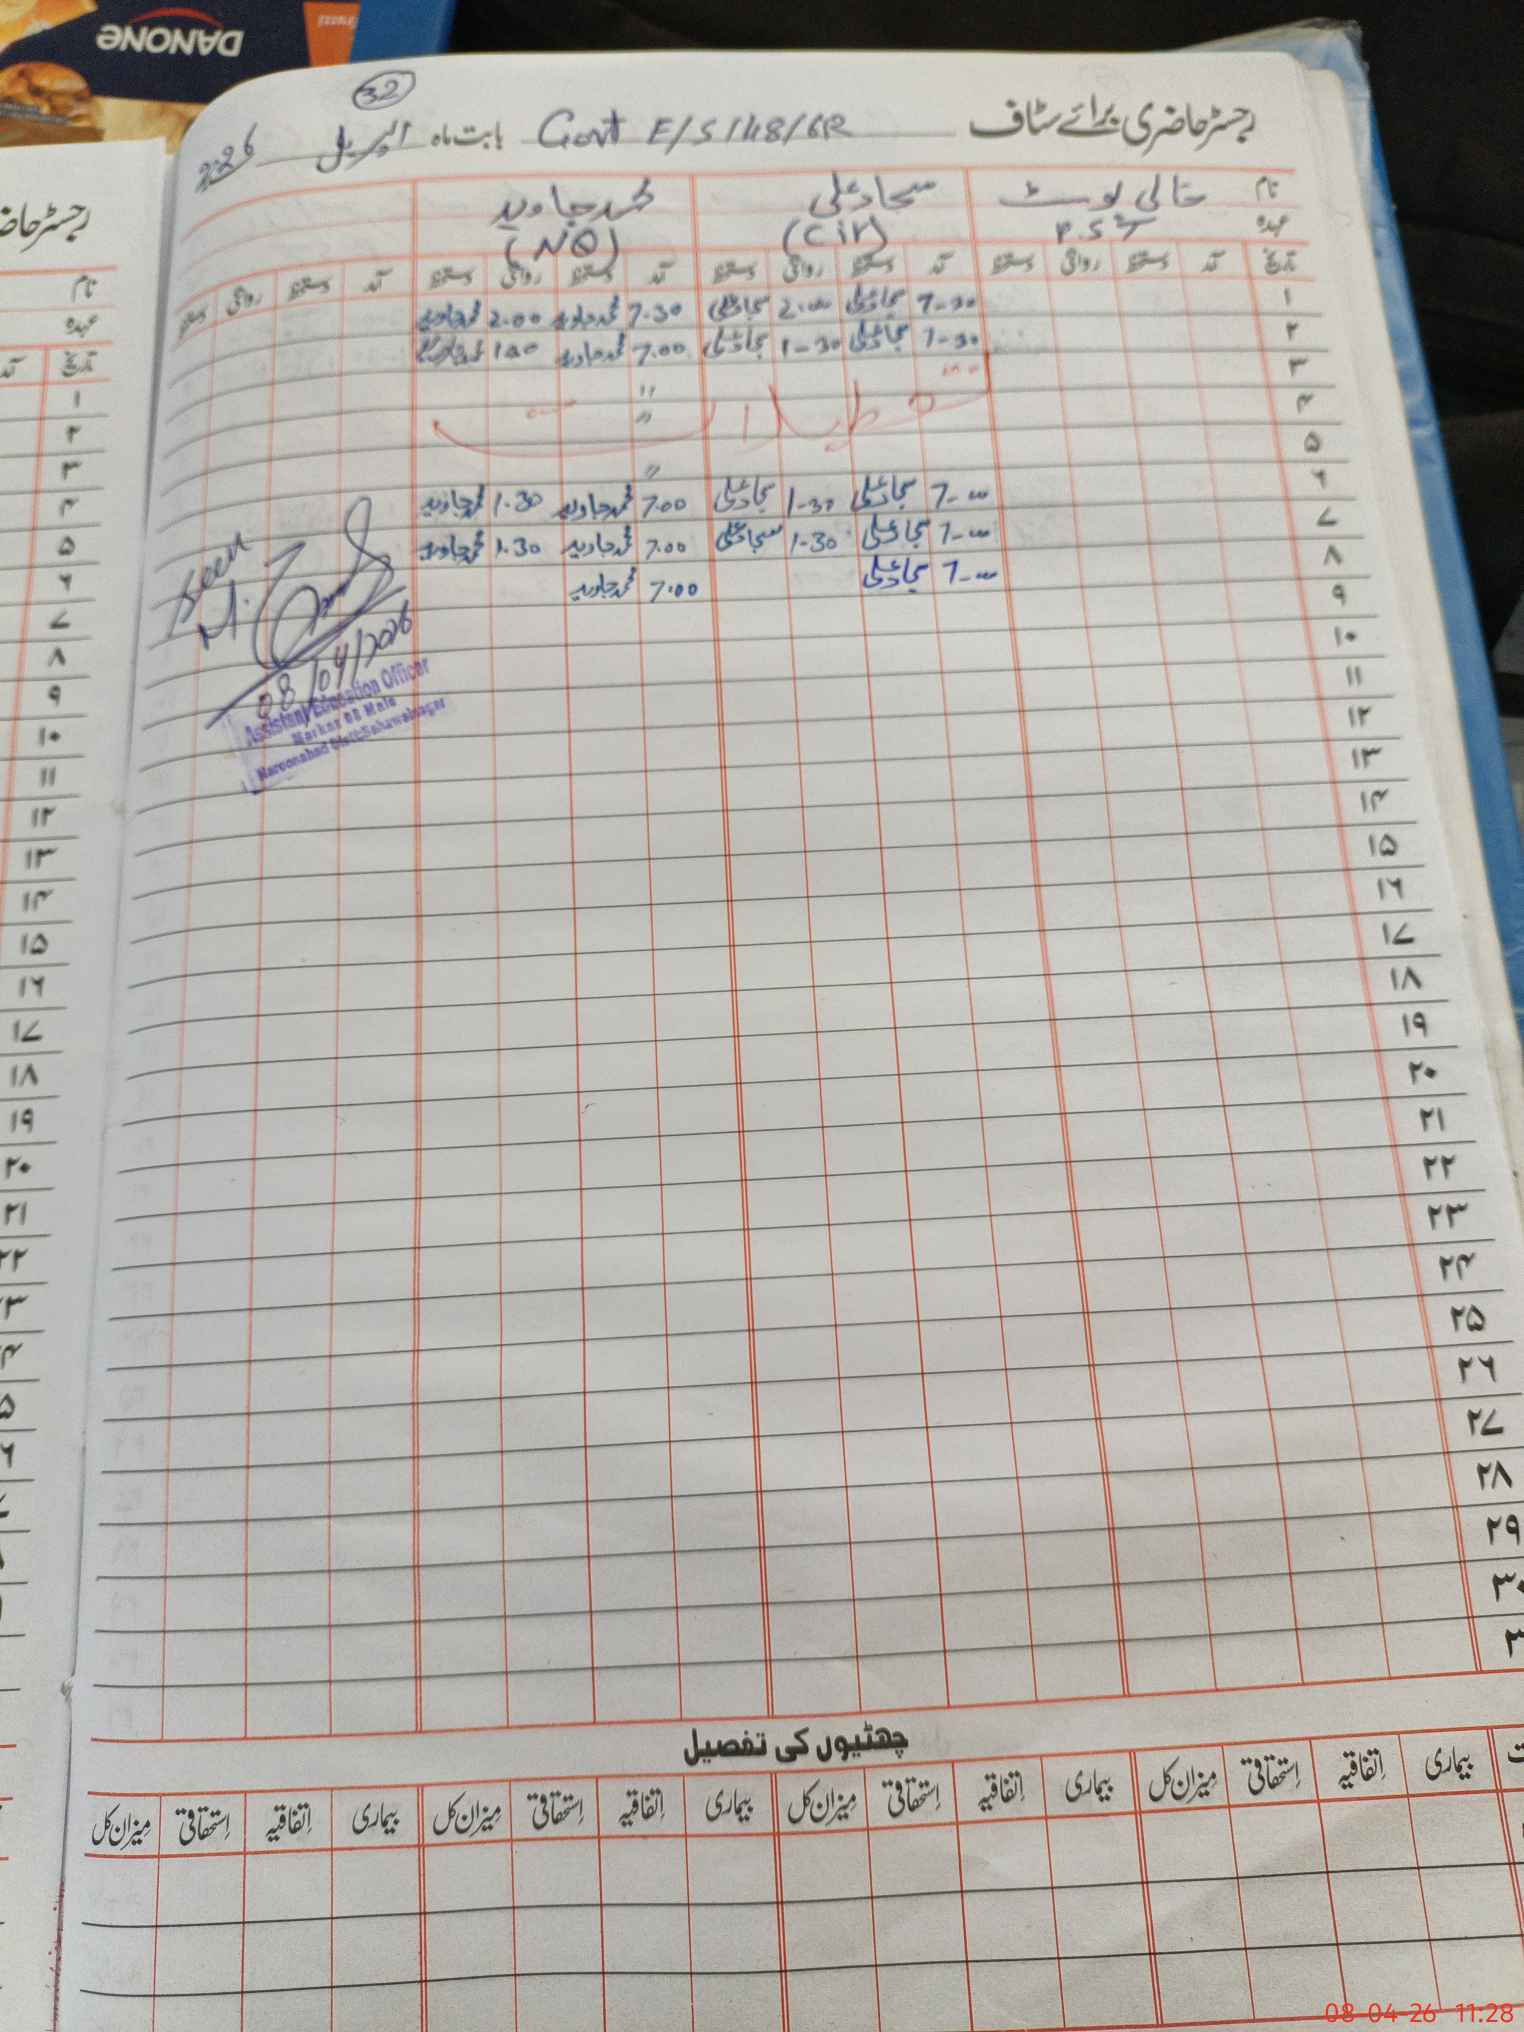 DANONE
32
رجسٹر حاضری برائے سٹاف Govt E/S 148/6R بابت ماہ اپریل 2026
نام خالی پوسٹ سجاد علی محمد جاوید
عہدہ P.S.T (Cir) (NQ)
تاریخ آمد دستخط روانگی دستخط آمد دستخط روانگی دستخط آمد دستخط روانگی دستخط آمد دستخط روانگی دستخط
۱ 7-30 سجاد علی 2.00 سجاد علی 7.30 محمد جاوید 2.00 محمد جاوید
۲ 7-30 سجاد علی 1-30 سجاد علی 7.00 محمد جاوید
۳ "
۴ تعطیلات "
۵ "
۶ 7-00 سجاد علی 1-30 سجاد علی 7.00 محمد جاوید 1.30 محمد جاوید
۷ 7-00 سجاد علی 1-30 سجاد علی 7.00 محمد جاوید 1.30 محمد جاوید
۸ 7-00 سجاد علی 7.00 محمد جاوید
۹
۱۰
۱۱
۱۲
۱۳
۱۴
۱۵
۱۶
۱۷
۱۸
۱۹
۲۰
۲۱
۲۲
۲۳
۲۴
۲۵
۲۶
۲۷
۲۸
۲۹
۳۰
Seen
08/04/2026
Assistant Education Officer
Markaz 08 Male
Haroonabad Distt. Bahawalnagar
چھٹیوں کی تفصیل
بیماری اتفاقیہ استحقاقی میزان کل بیماری اتفاقیہ استحقاقی میزان کل بیماری اتفاقیہ استحقاقی میزان کل بیماری اتفاقیہ استحقاقی میزان کل
رجسٹر حاضری
نام
عہدہ
تاریخ آمد
۱
۲
۳
۴
۵
۶
۷
۸
۹
۱۰
۱۱
۱۲
۱۳
۱۴
۱۵
۱۶
۱۷
۱۸
۱۹
۲۰
۲۱
08-04-26 11:28